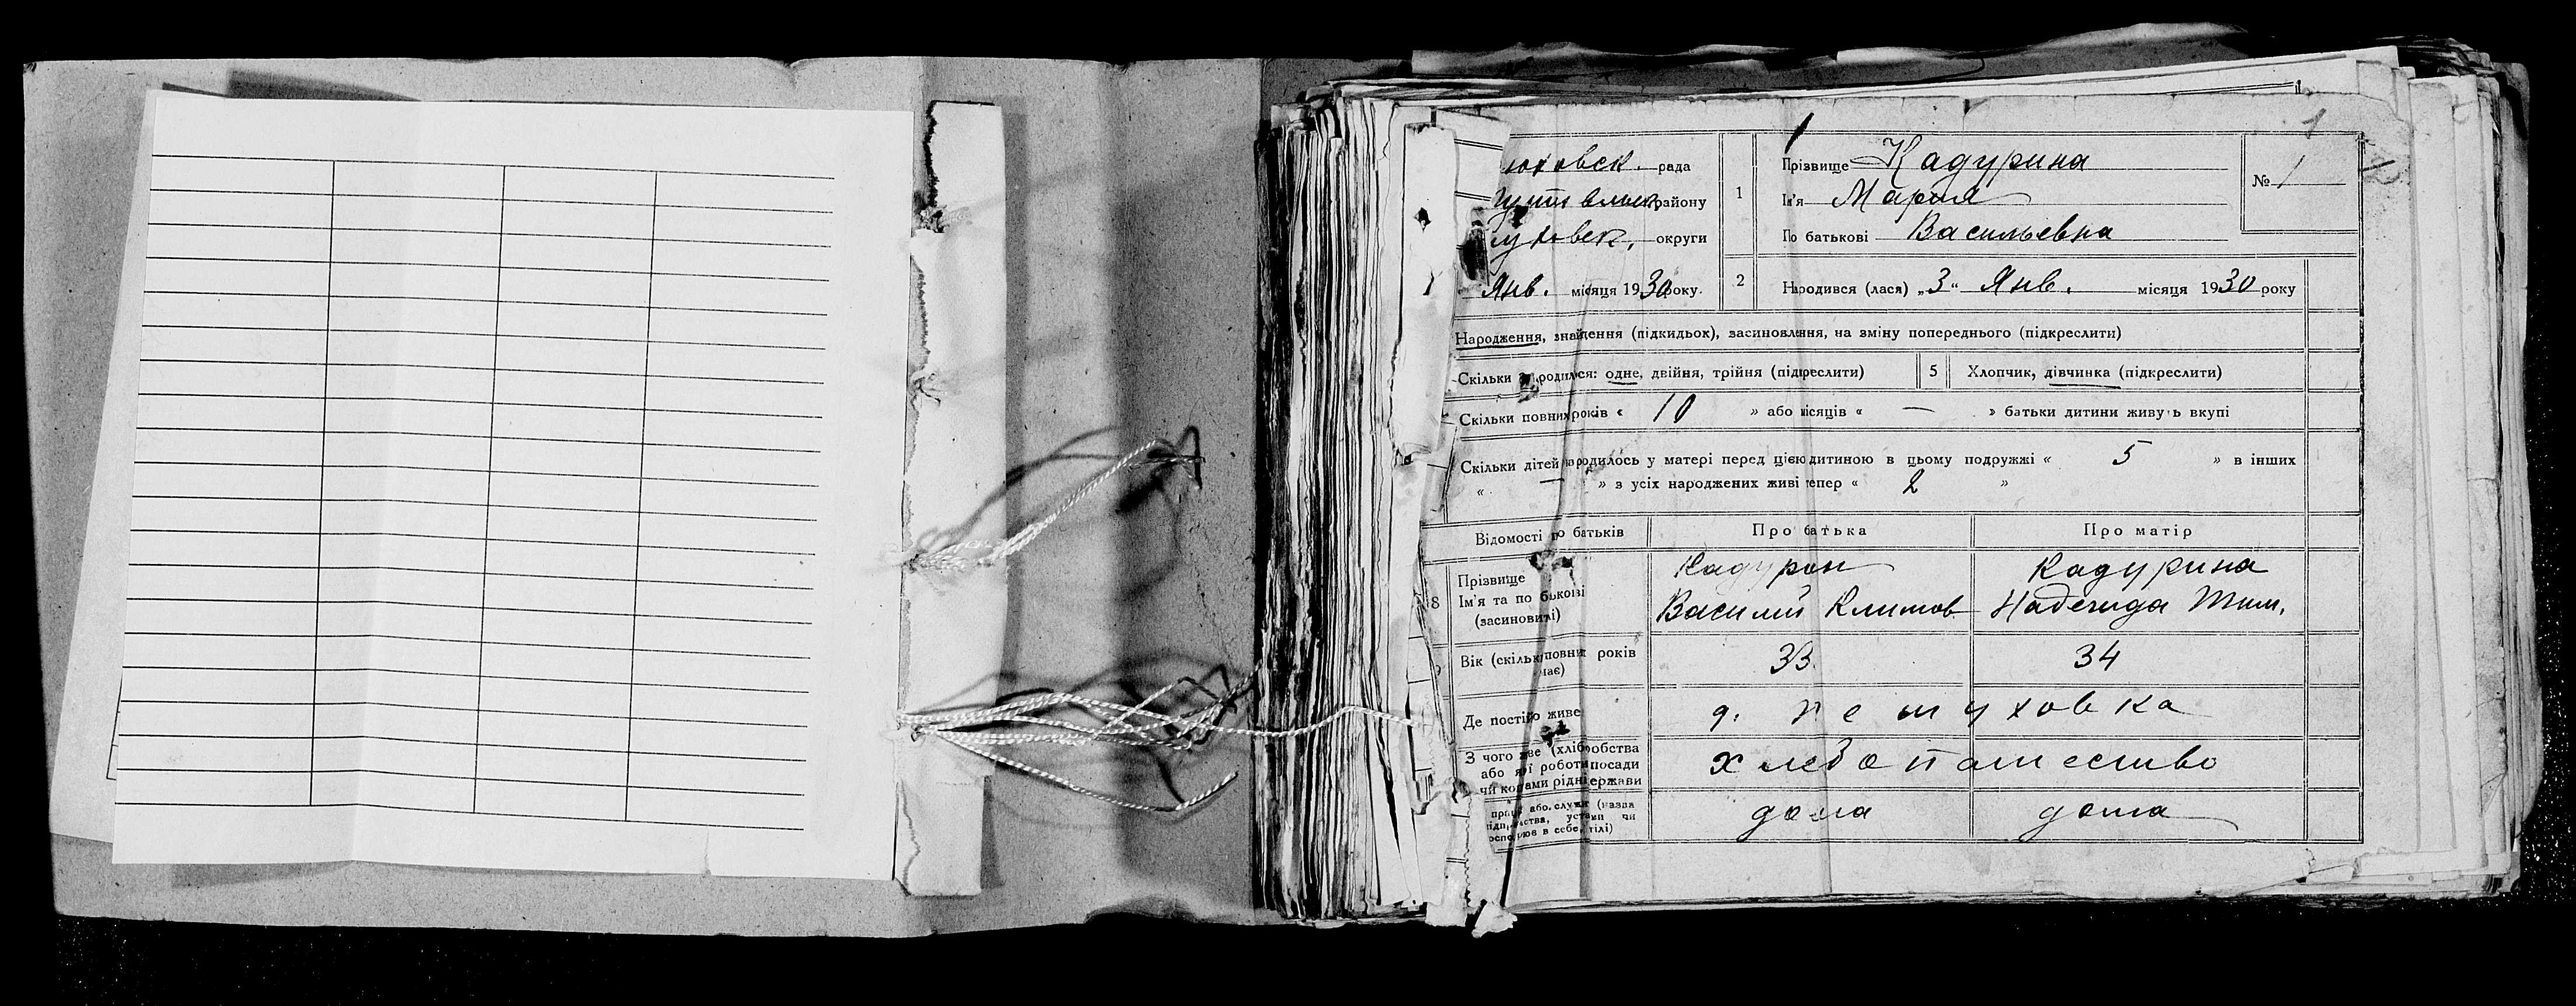 1
1
юховск. рада
Путивльск. району
луховск, округи
Янв. місяця 1930 року.
1
Прізвище Кадурина
Ім'я Мария
По батькові Васильевна
№ 1
2
Народився (лася) „3“ Янв. місяця 1930 року
Народження, знайдення (підкидьок), засиновлення, на зміну попереднього (підкреслити)
Скільки народилося: одне, двійня, трійня (підкреслити)
5
Хлопчик, дівчинка (підкреслити)
Скільки повних років « 10 » або місяців « — » батьки дитини живуть вкупі
Скільки дітей народилось у матері перед цією дитиною в цьому подружжі « 5 » в інших
« — » з усіх народжених живі тепер « 2 »
Відомості по батьків
Про батька
Про матір
8
Прізвище
Ім'я та по бькові
(засиновилі)
Кадурин
Василий Климов
Кадурина
Надежда Тим.
Вік (скільки повних років
має)
33
34
Де постійно живе
д. Петуховка
З чого живе (хліборобства
або якої роботи посади
чи коштами рідні держави
хлебопашество
праці або служби (назва
підприємства, установи чи
господарює в себе тілі)
дома
дома